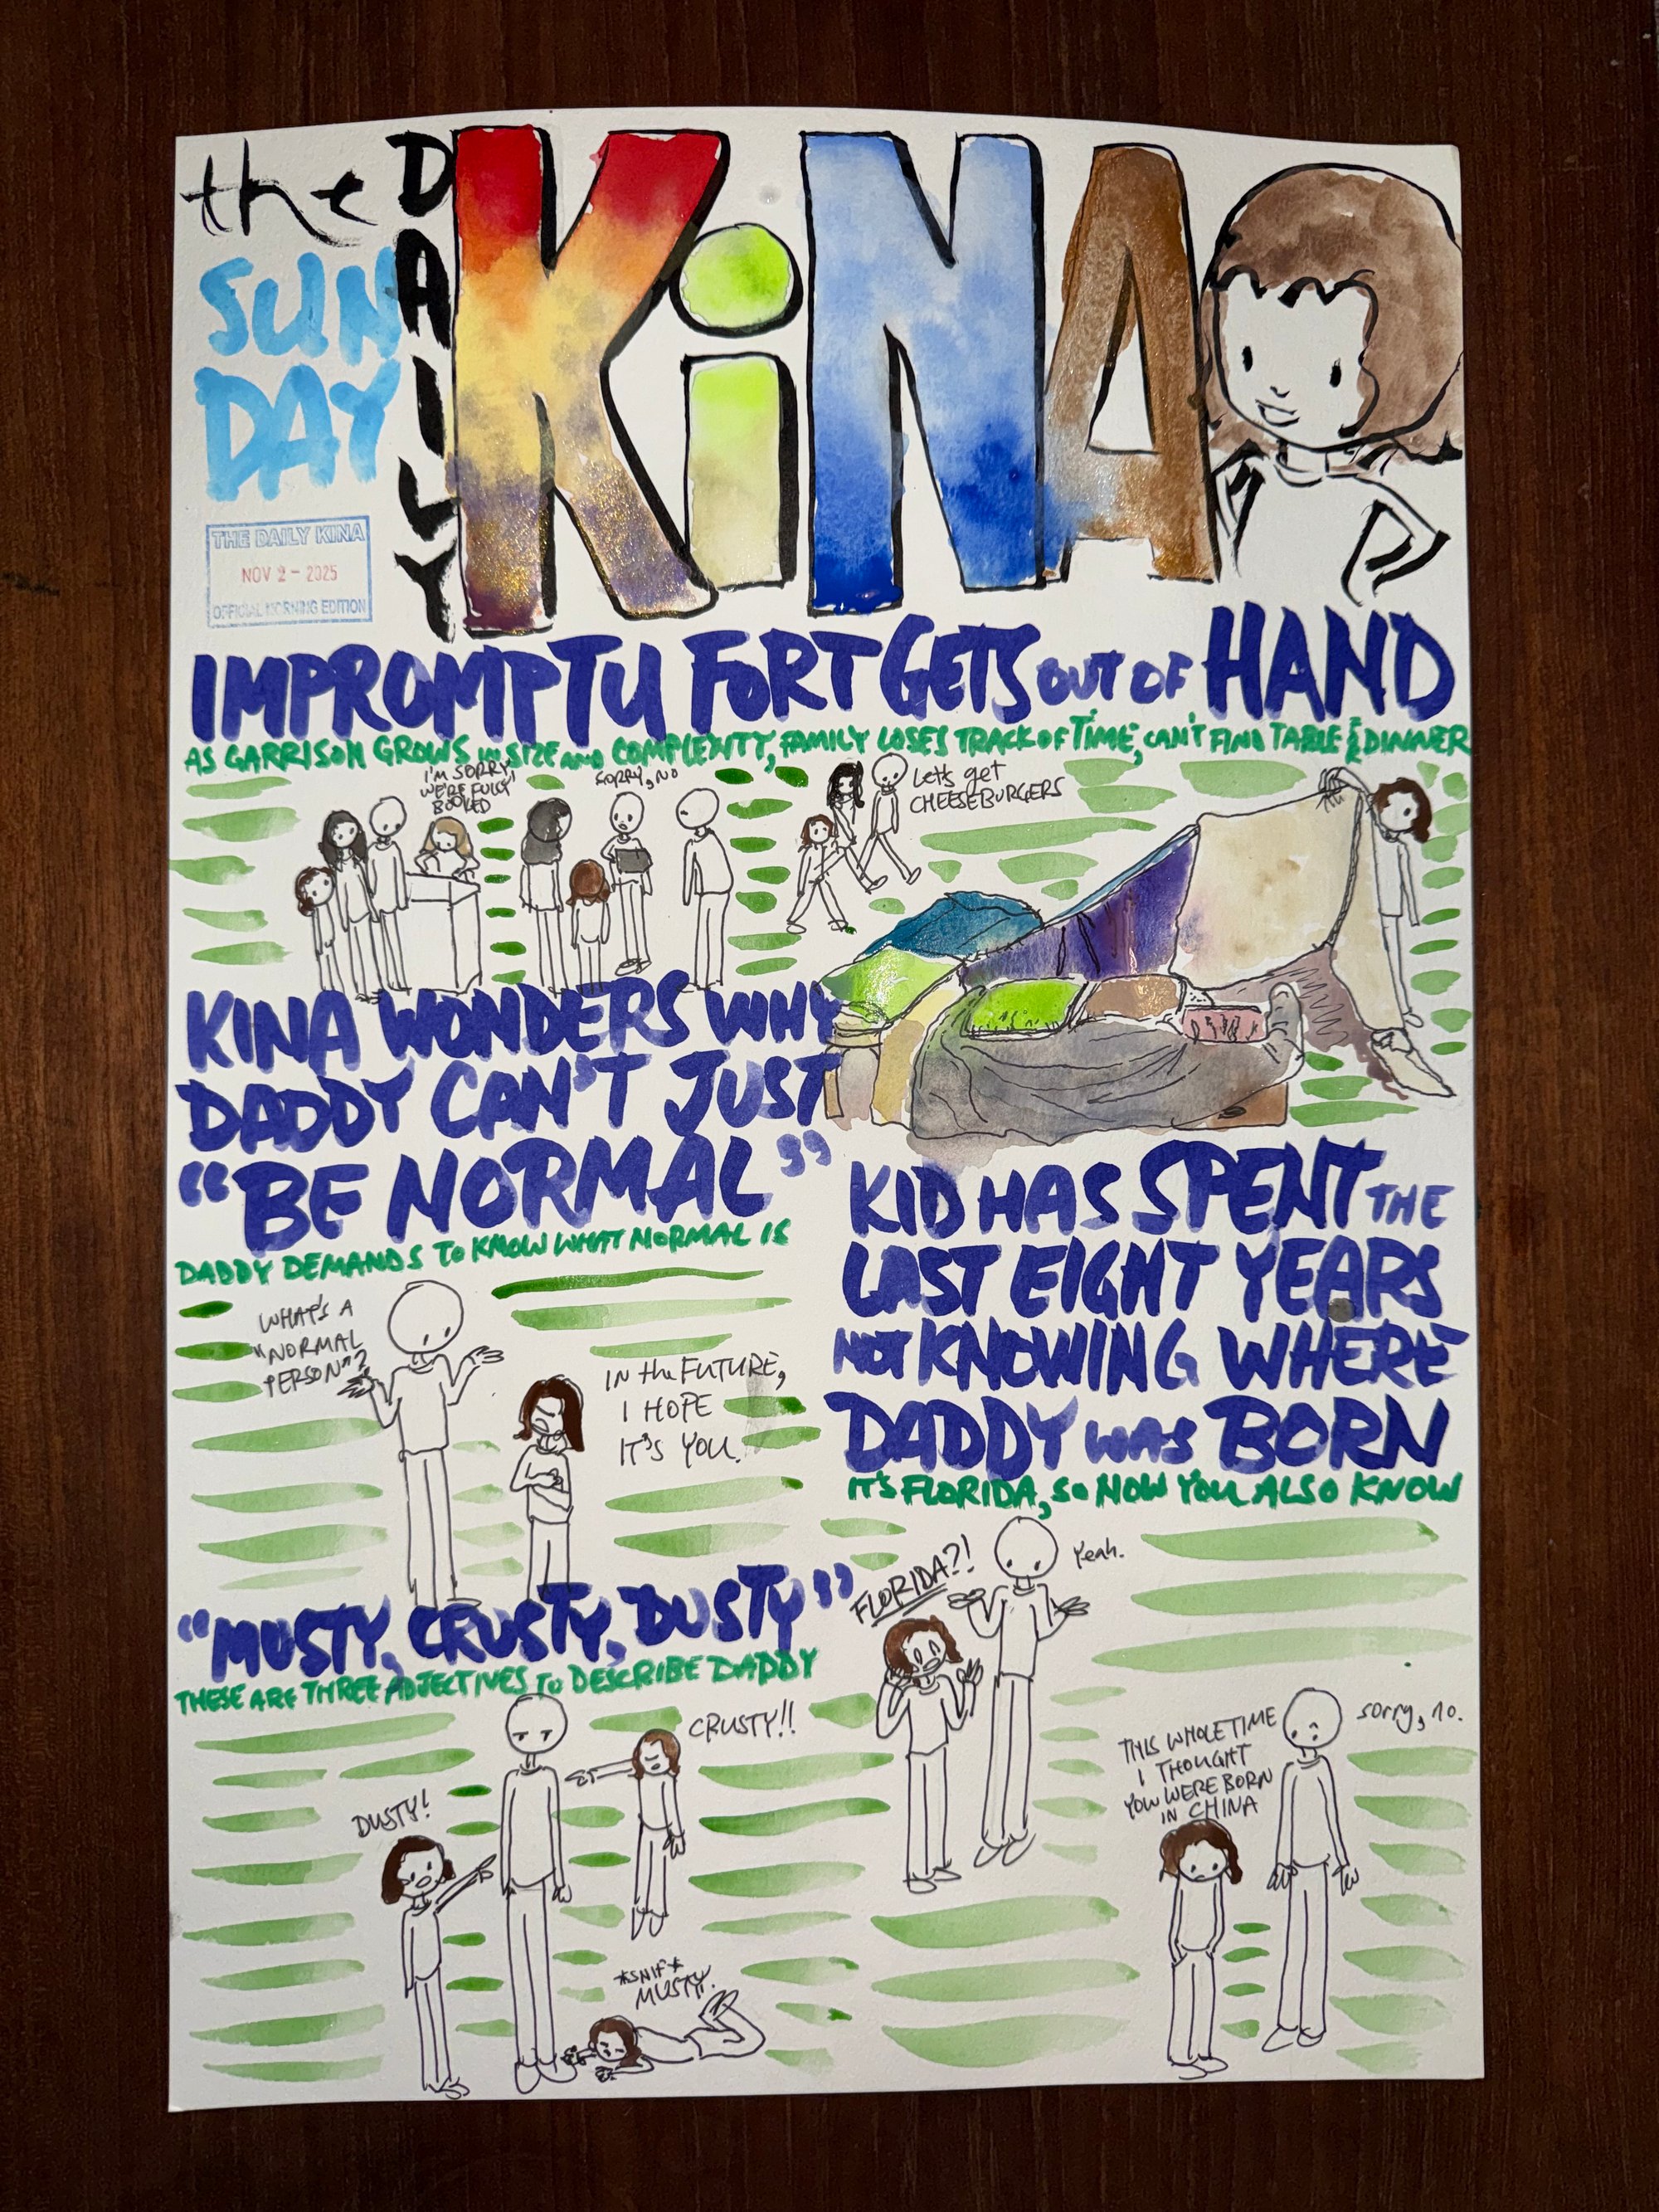 the
SUN
DAY
DAILY
KiNA
THE DAILY KINA
NOV 2 - 2025
OFFICIAL MORNING EDITION
IMPROMPTU FORT GETS OUT OF HAND
AS GARRISON GROWS IN SIZE AND COMPLEXITY, FAMILY LOSES TRACK OF TIME, CAN'T FIND TABLE 4 DINNER
I'M SORRY,
WE'RE FULLY
BOOKED
SORRY, NO
Let's get
CHEESEBURGERS
KINA WONDERS WHY
DADDY CAN'T JUST
“BE NORMAL”
DADDY DEMANDS TO KNOW WHAT NORMAL IS
WHAT'S A
"NORMAL
PERSON"?
IN the FUTURE,
I HOPE
IT'S YOU.
KID HAS SPENT THE
LAST EIGHT YEARS
NOT KNOWING WHERE
DADDY WAS BORN
IT'S FLORIDA, SO NOW YOU ALSO KNOW
FLORIDA?!
Yeah.
THIS WHOLE TIME
I THOUGHT
YOU WERE BORN
IN CHINA
sorry, no.
“MUSTY, CRUSTY, DUSTY”
THESE ARE THREE ADJECTIVES TO DESCRIBE DADDY
CRUSTY!!
DUSTY!
*SNIF*
MUSTY.